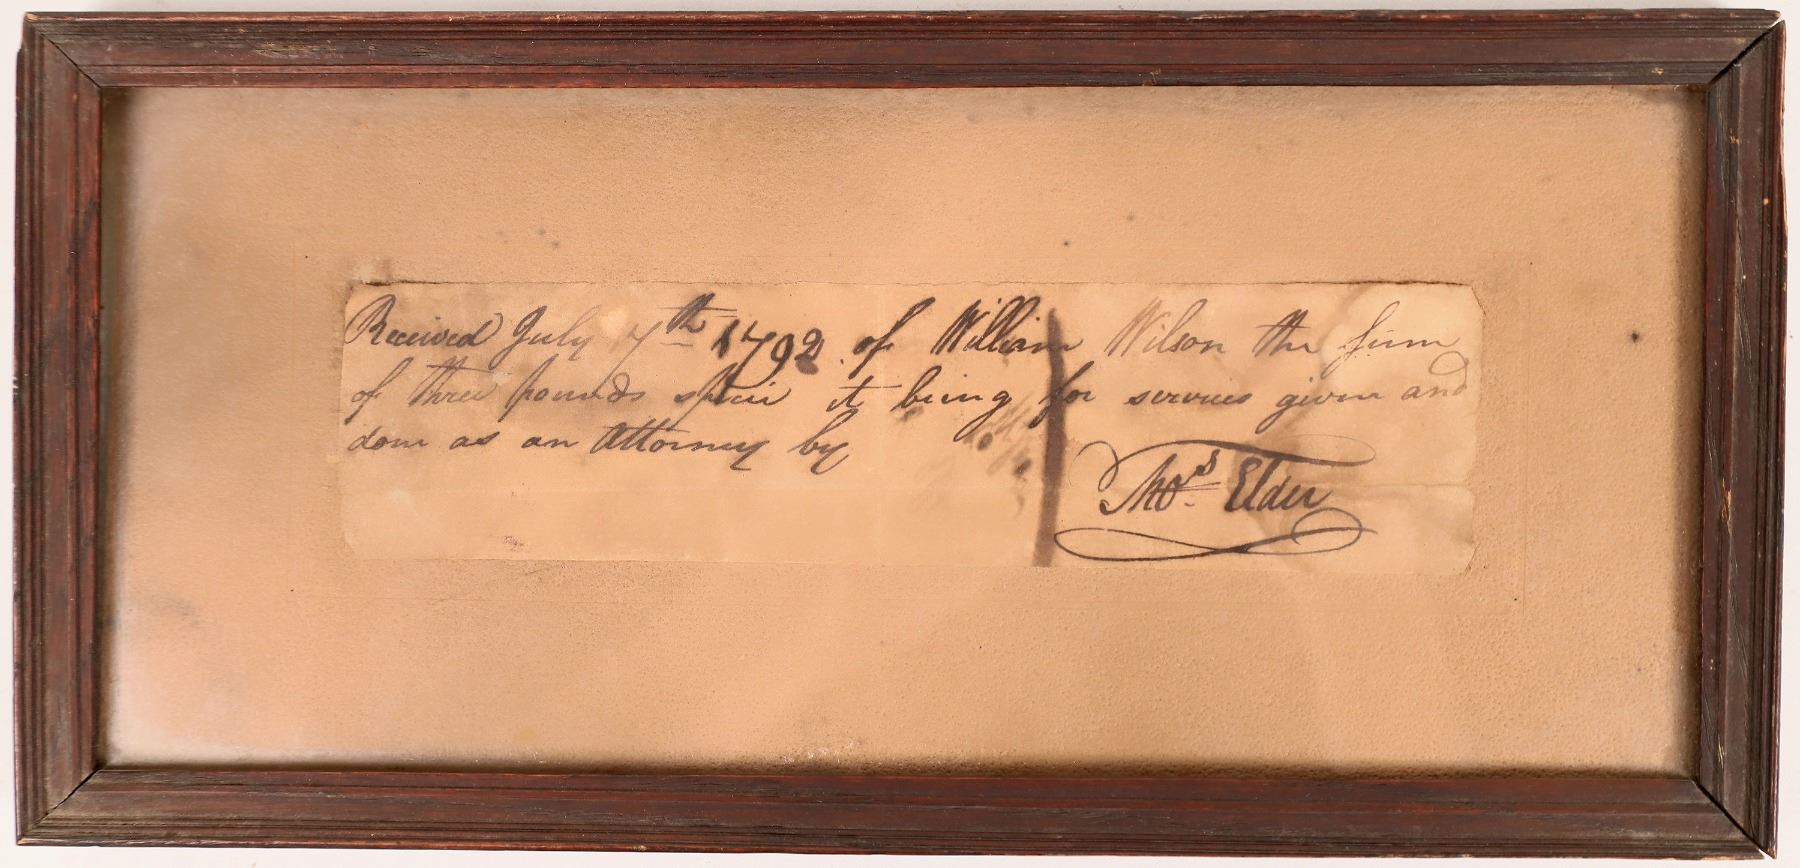 Received July 7th 1792 of William Wilson the sum
of three pounds specie it being for services given and
done as an Attorney by
Thos Elder